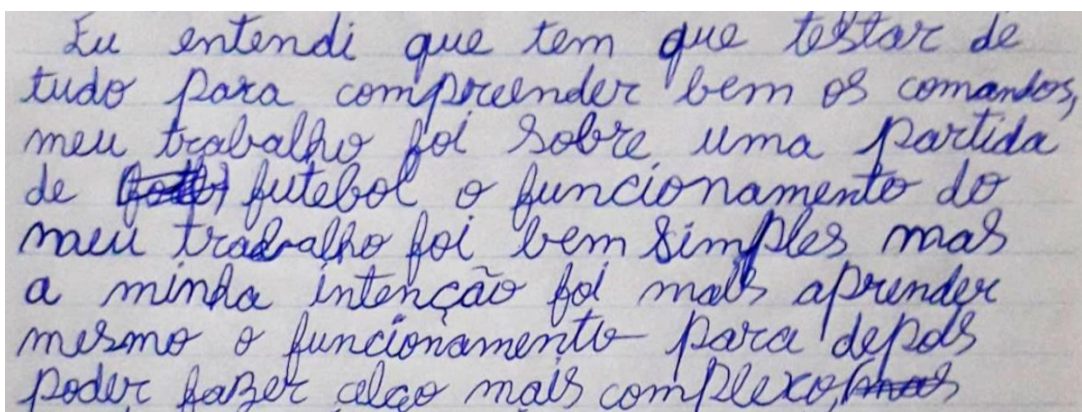 Eu entendi que tem que testar de
tudo para compreender bem os comandos,
meu trabalho foi sobre uma partida
de futebol o funcionamento do
meu trabalho foi bem simples mas
a minha intenção foi mais aprender
mesmo o funcionamento para depois
poder fazer algo mais complexo,